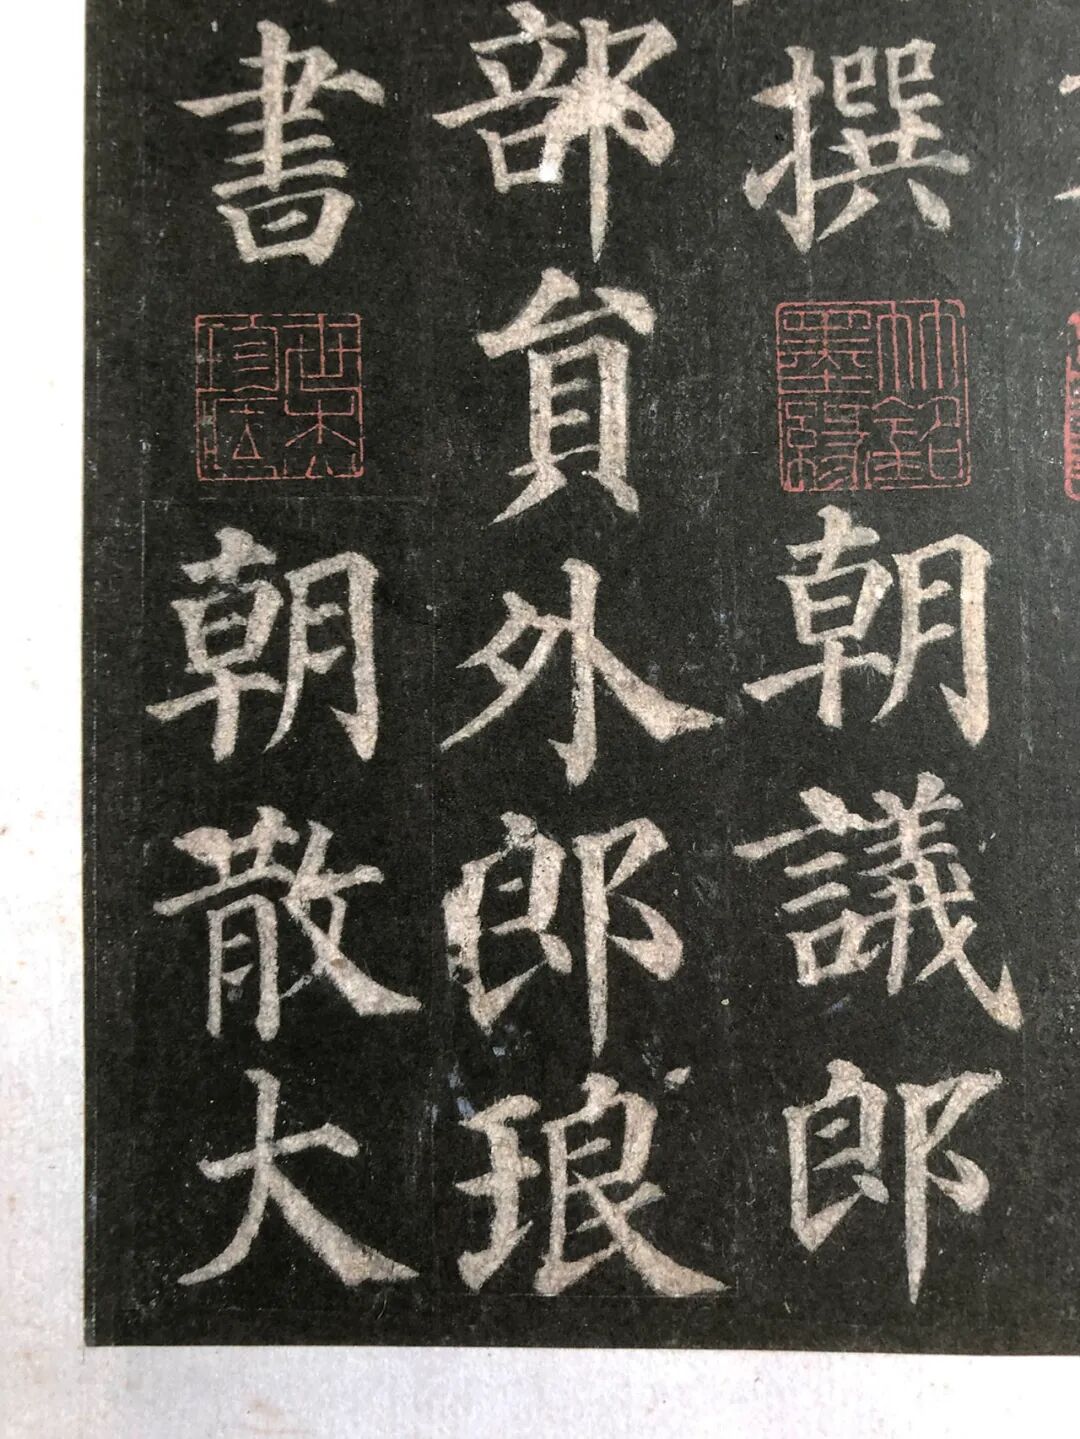 撰朝議郎
部員外郎琅
書朝散大